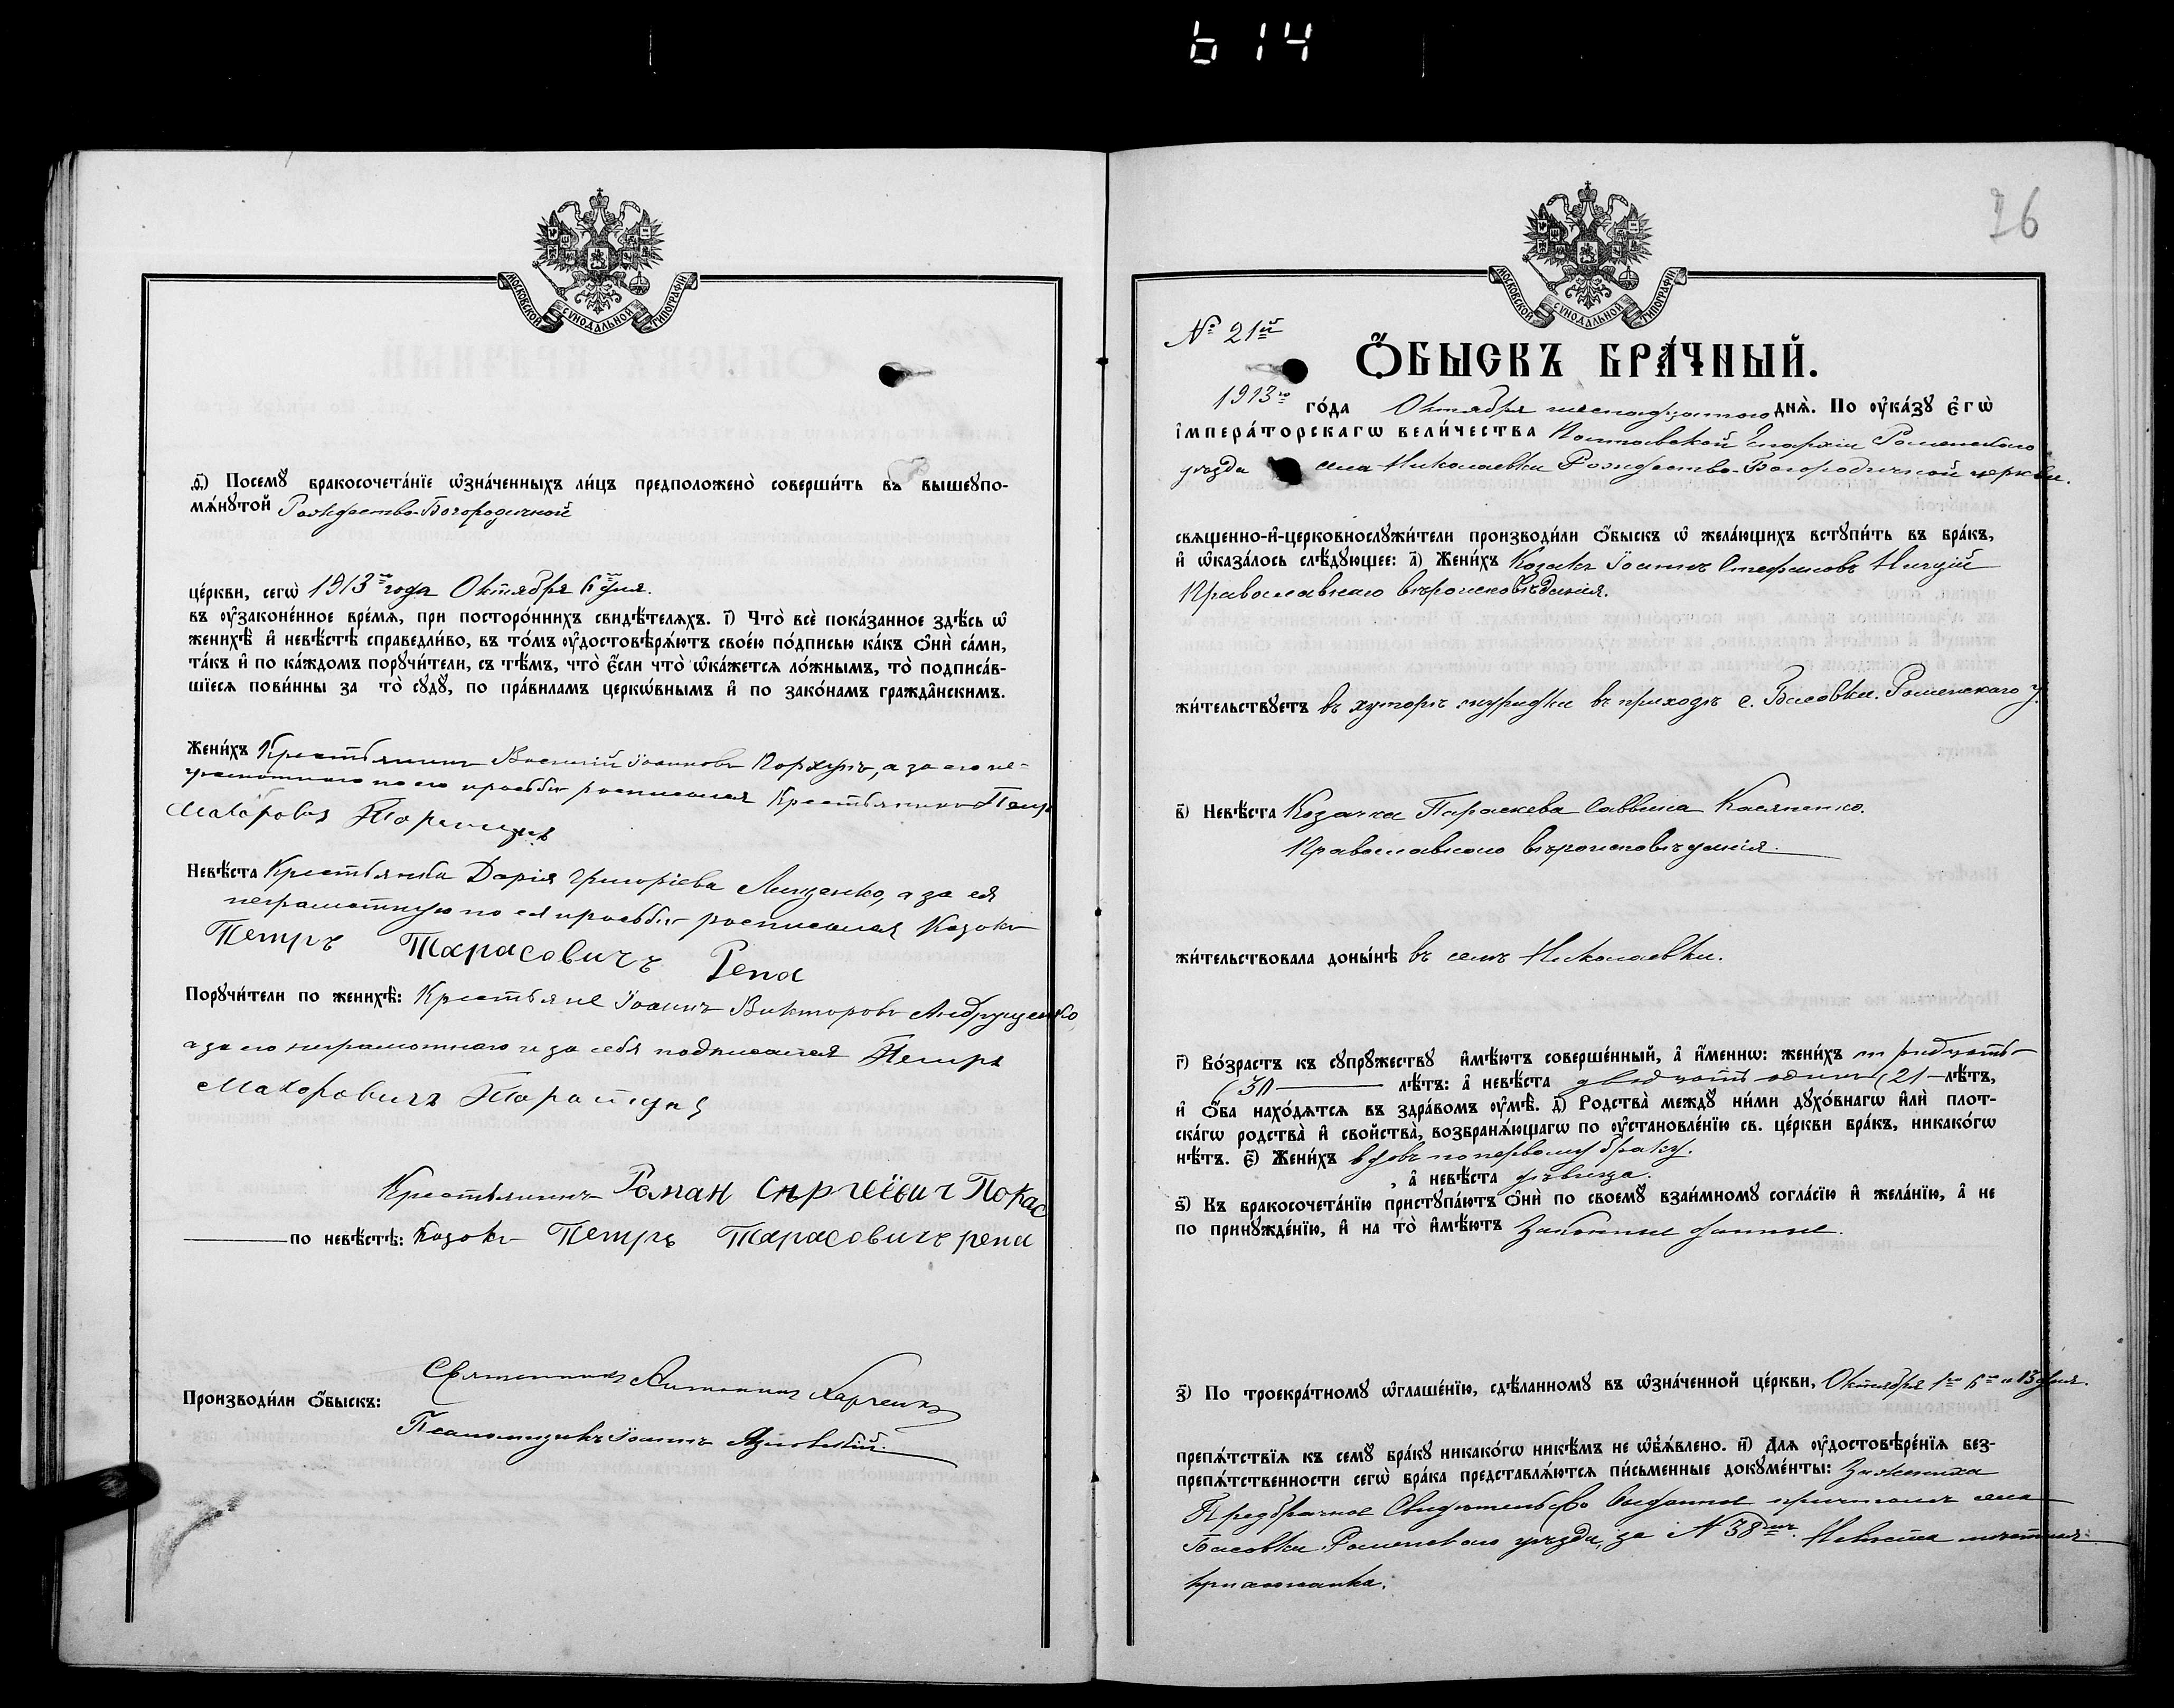 614
МОСКОВСКОЙ СѴНОДАЛЬНОЙ ТИПОГРАФІИ
ѳ҃) Посемꙋ̀ бракосочета́нїе ѡ҆зна́ченныхъ ли́цъ предположено̀ соверши́ть въ вышеꙋпо-
мѧ́нꙋтой Рождество-Богородичной
це́ркви, сегѡ̀ 1913го года Октября 6го дня.
въ оу҆зако́ненное вре́мѧ, при посторо́ннихъ свидѣ́телѧхъ. і҃) Что̀ всѐ пока́занное здѣ́сь ѡ҆
женихѣ̀ и҆ невѣ́стѣ справедли́во, въ то́мъ оу҆достовѣрѧ́ютъ свое́ю по́дписью ка́къ ѻ҆нѝ са́ми,
та́къ и҆ по ка́ждомъ порꙋчи́тели, съ тѣ́мъ, что̀ є҆́сли что̀ ѡ҆ка́жетсѧ ло́жнымъ, то̀ подписа́в-
шїесѧ пови́нны за то̀ сꙋдꙋ̀, по пра́виламъ церкѡ́внымъ и҆ по зако́намъ гражда̂нскимъ.
Жени́хъ Крестьянинъ Василій Іоанновъ Коржунъ, а за его не-
грамотнаго по его просьбѣ росписался Крестьянинъ Петръ
Невѣ́ста Крестьянка Дарія Григоріева Лищенко, а за ея
неграмотную по ея просьбѣ росписался Козакъ
Петръ Тарасовичъ Репа
Порꙋчи́тели по женихѣ̀: Крестьяне Іоаннъ Викторовъ Андрущенко
а за его неграмотнаго и за себя подписался Петръ
Крестьянинъ Роман Сѣргѣевич Покас
по невѣ́стѣ: Козакъ Петръ Тарасовичъ репа
Производи́ли ѻ҆́быскъ: Священникъ Харченко
Псаломщикъ Іоаннъ
26
МОСКОВСКОЙ СѴНОДАЛЬНОЙ ТИПОГРАФІИ
№ 21й
Ѻ҆́БЫСКЪ БРА́ЧНЫЙ.
1913го го́да Октября шестнадцатого днѧ̀. По оу҆ка́зꙋ є҆гѡ̀
і҆мпера́торскагѡ вели́чества Полтавской Епархіи Роменского
уѣзда села Николаевки Рождество-Богородичной церкви.
свѧщенно-и҆-церковнослꙋжи́тели производи́ли ѻ҆́быскъ ѡ҆ жела́ющихъ встꙋпи́ть въ бра́къ,
и҆ ѡ҆каза́лось слѣ́дꙋющее: а҃) Жени́хъ Козакъ Іоаннъ Стефановъ Ницій
Православнаго вѣроисповѣданія.
жи́тельствꙋетъ въ хуторѣ въ приходѣ с. Басовки. Роменскаго у.
в҃) Невѣ́ста Козачка Параскева Саввина Касяненко.
Православнаго вѣроисповѣданія.
жи́тельствовала доны́нѣ въ селѣ Николаевки.
г҃) Во́зрастъ къ сꙋпрꙋ́жествꙋ и҆мѣ́ютъ соверше́нный, а҆ и҆́меннѡ: жени́хъ тридцать
(30 лѣ́тъ: а҆ невѣ́ста двадцать один (21 лѣ́тъ,
и҆ ѻ҆́ба нахо́дѧтсѧ въ здра́вомъ оу҆мѣ̀. д҃) Родства̀ междꙋ̀ ни́ми дꙋхо́внагѡ и҆лѝ плот-
ска́гѡ родства̀ и҆ свойства̀, возбранѧ́ющагѡ по оу҆становле́нїю св. це́ркви бра́къ, никако́гѡ
нѣ́тъ. є҃) Жени́хъ вдовъ по первому браку.
, а҆ невѣ́ста дѣвица.
ѕ҃) Къ бракосочета́нїю пристꙋпа́ютъ ѻ҆нѝ по своемꙋ̀ взаи́мномꙋ согла́сїю и҆ жела́нїю, а҆ не
по принꙋжде́нїю, и҆ на то̀ и҆мѣ́ютъ Законные данные.
з҃) По троекра́тномꙋ ѡ҆глаше́нїю, сдѣ́ланномꙋ въ ѡ҆зна́ченной це́ркви, Октября 1го 6го и 13 дня.
препѧ́тствїѧ къ семꙋ̀ бра́кꙋ никако́гѡ никѣ́мъ не ѡ҆б̾ѧ́влено. и҃) Длѧ оу҆достовѣре́нїѧ без-
препѧ́тственности сегѡ̀ бра́ка представлѧ́ютсѧ пи́сьменные докꙋме́нты: За жениха
Предбрачное Свидѣтельство Выданное причтомъ села
Басовки Роменского уѣзда, за № 38мъ. Невѣста мѣстная
прихожанка.